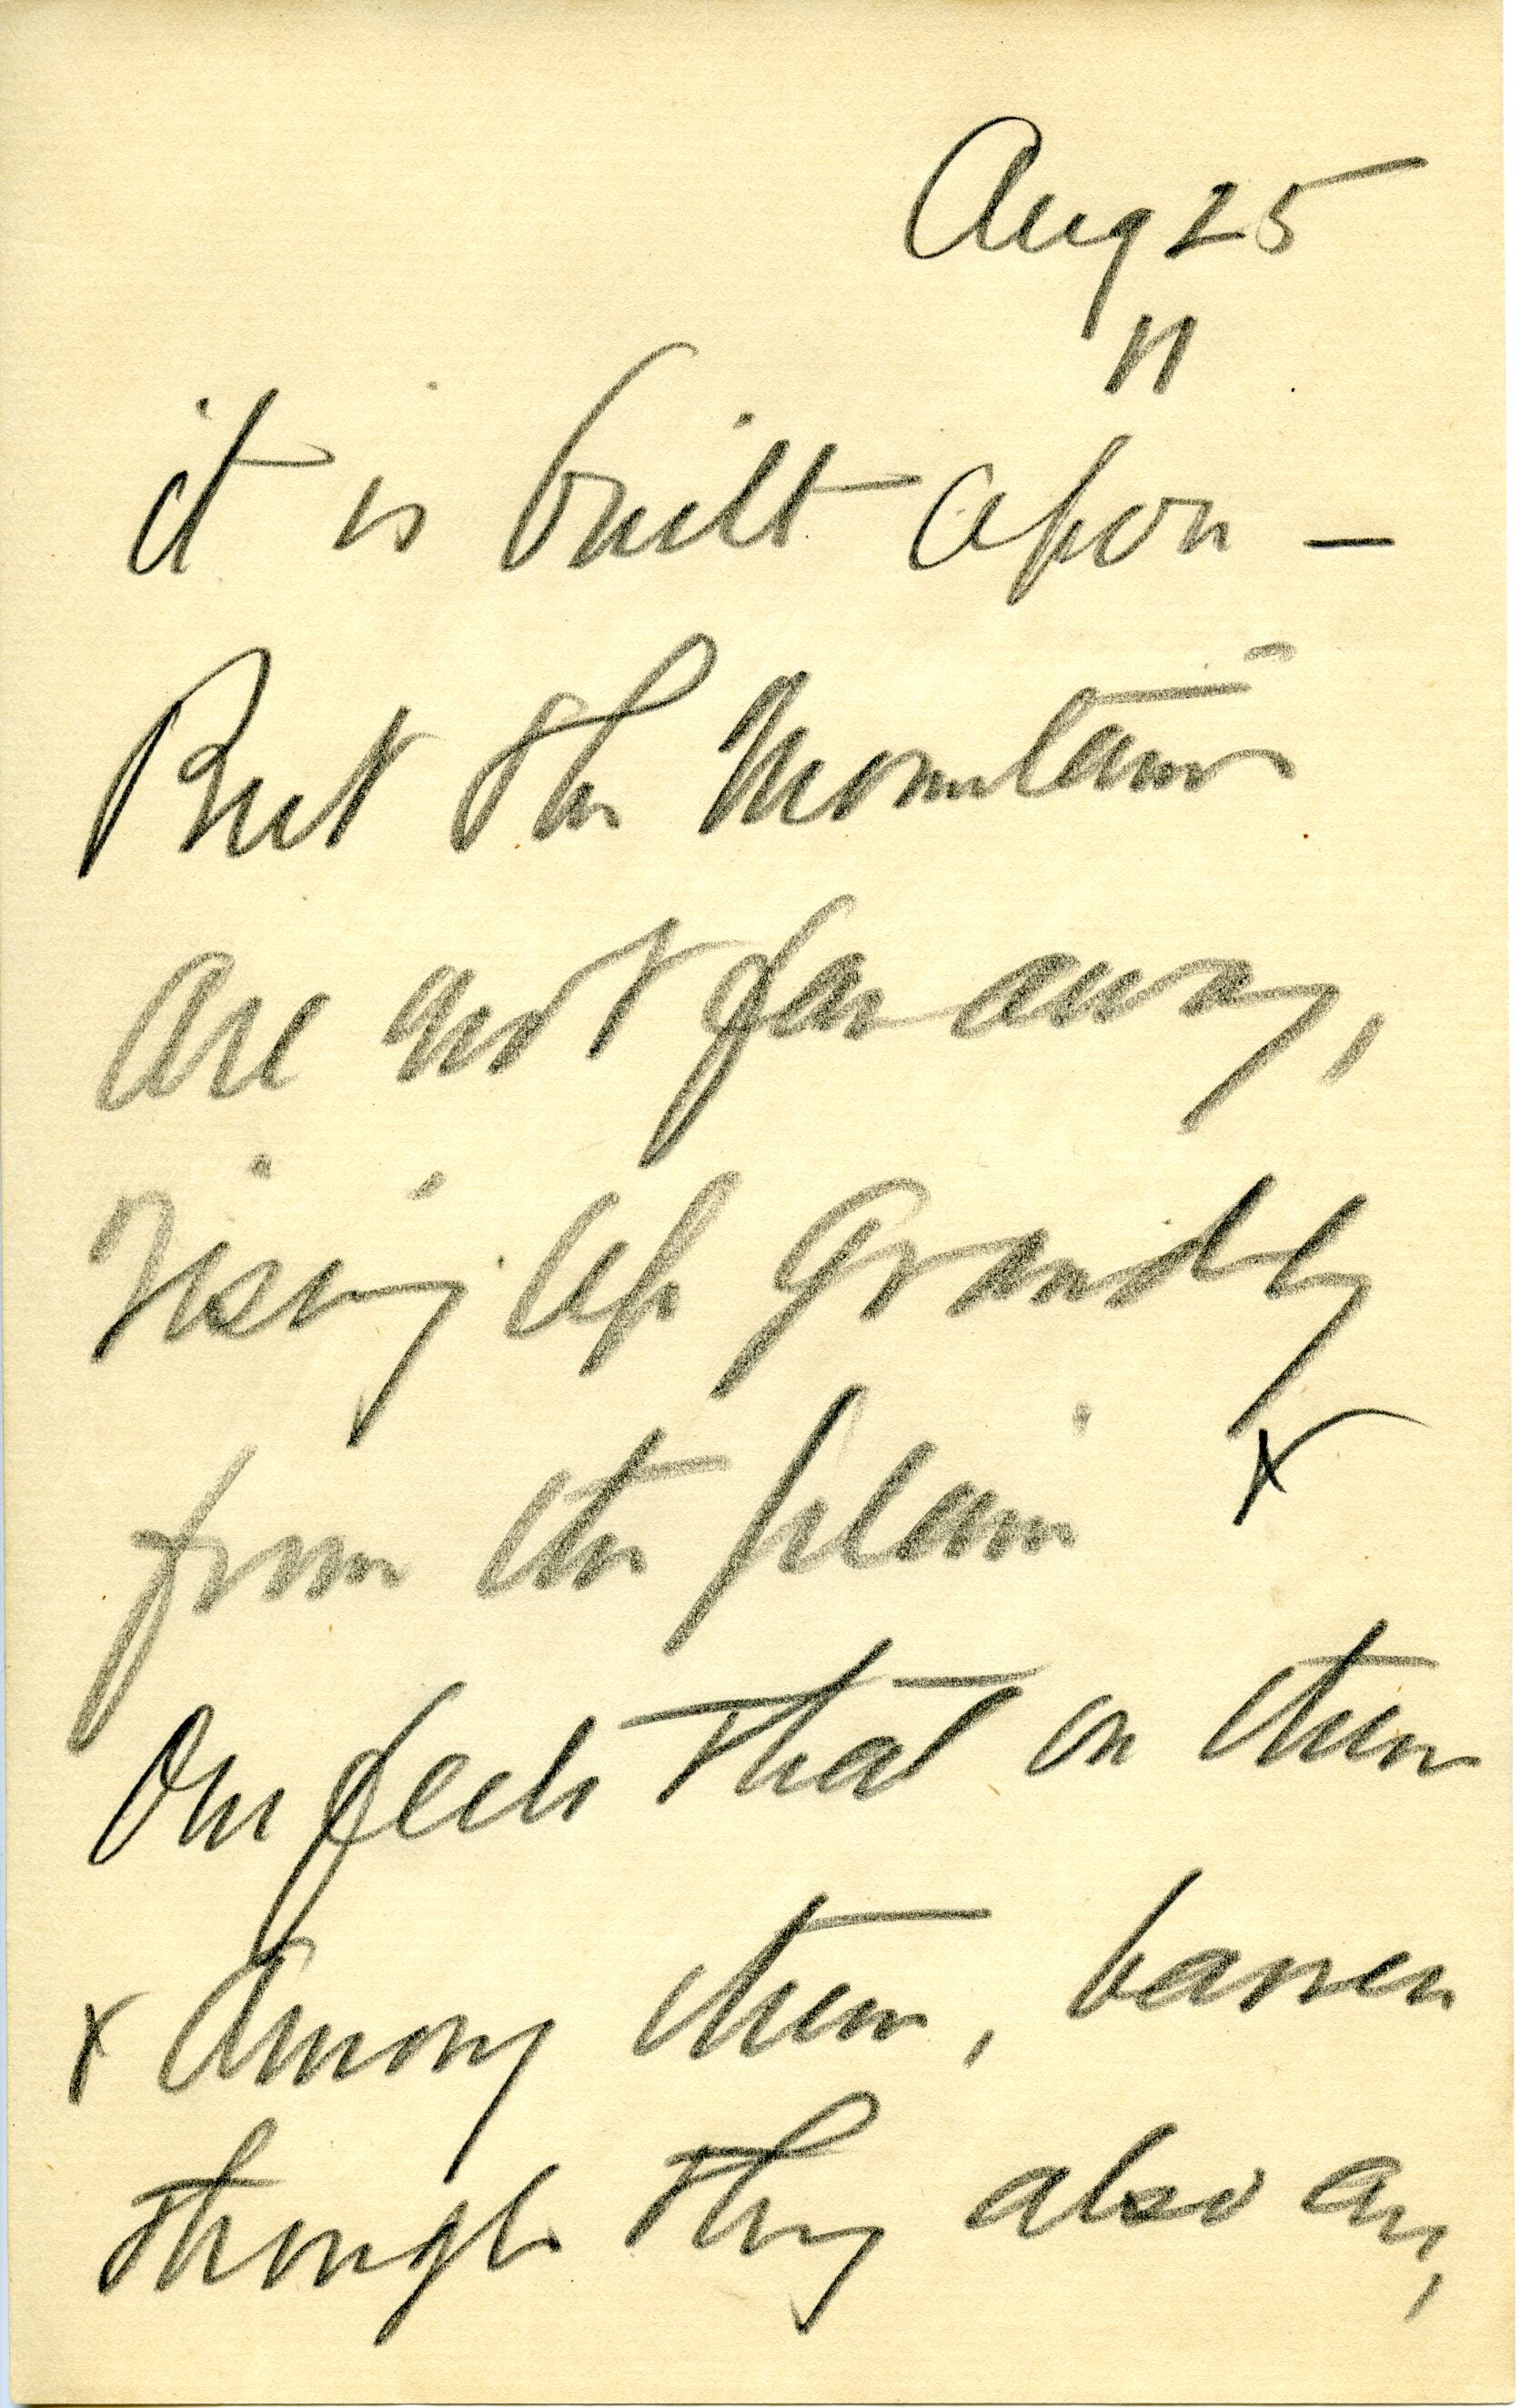 Aug 25
11
it is built upon —
But the Mountains
are not far away,
rising up grandly
from the plain x
One feels that in them
x Among them, barren
though they also are,